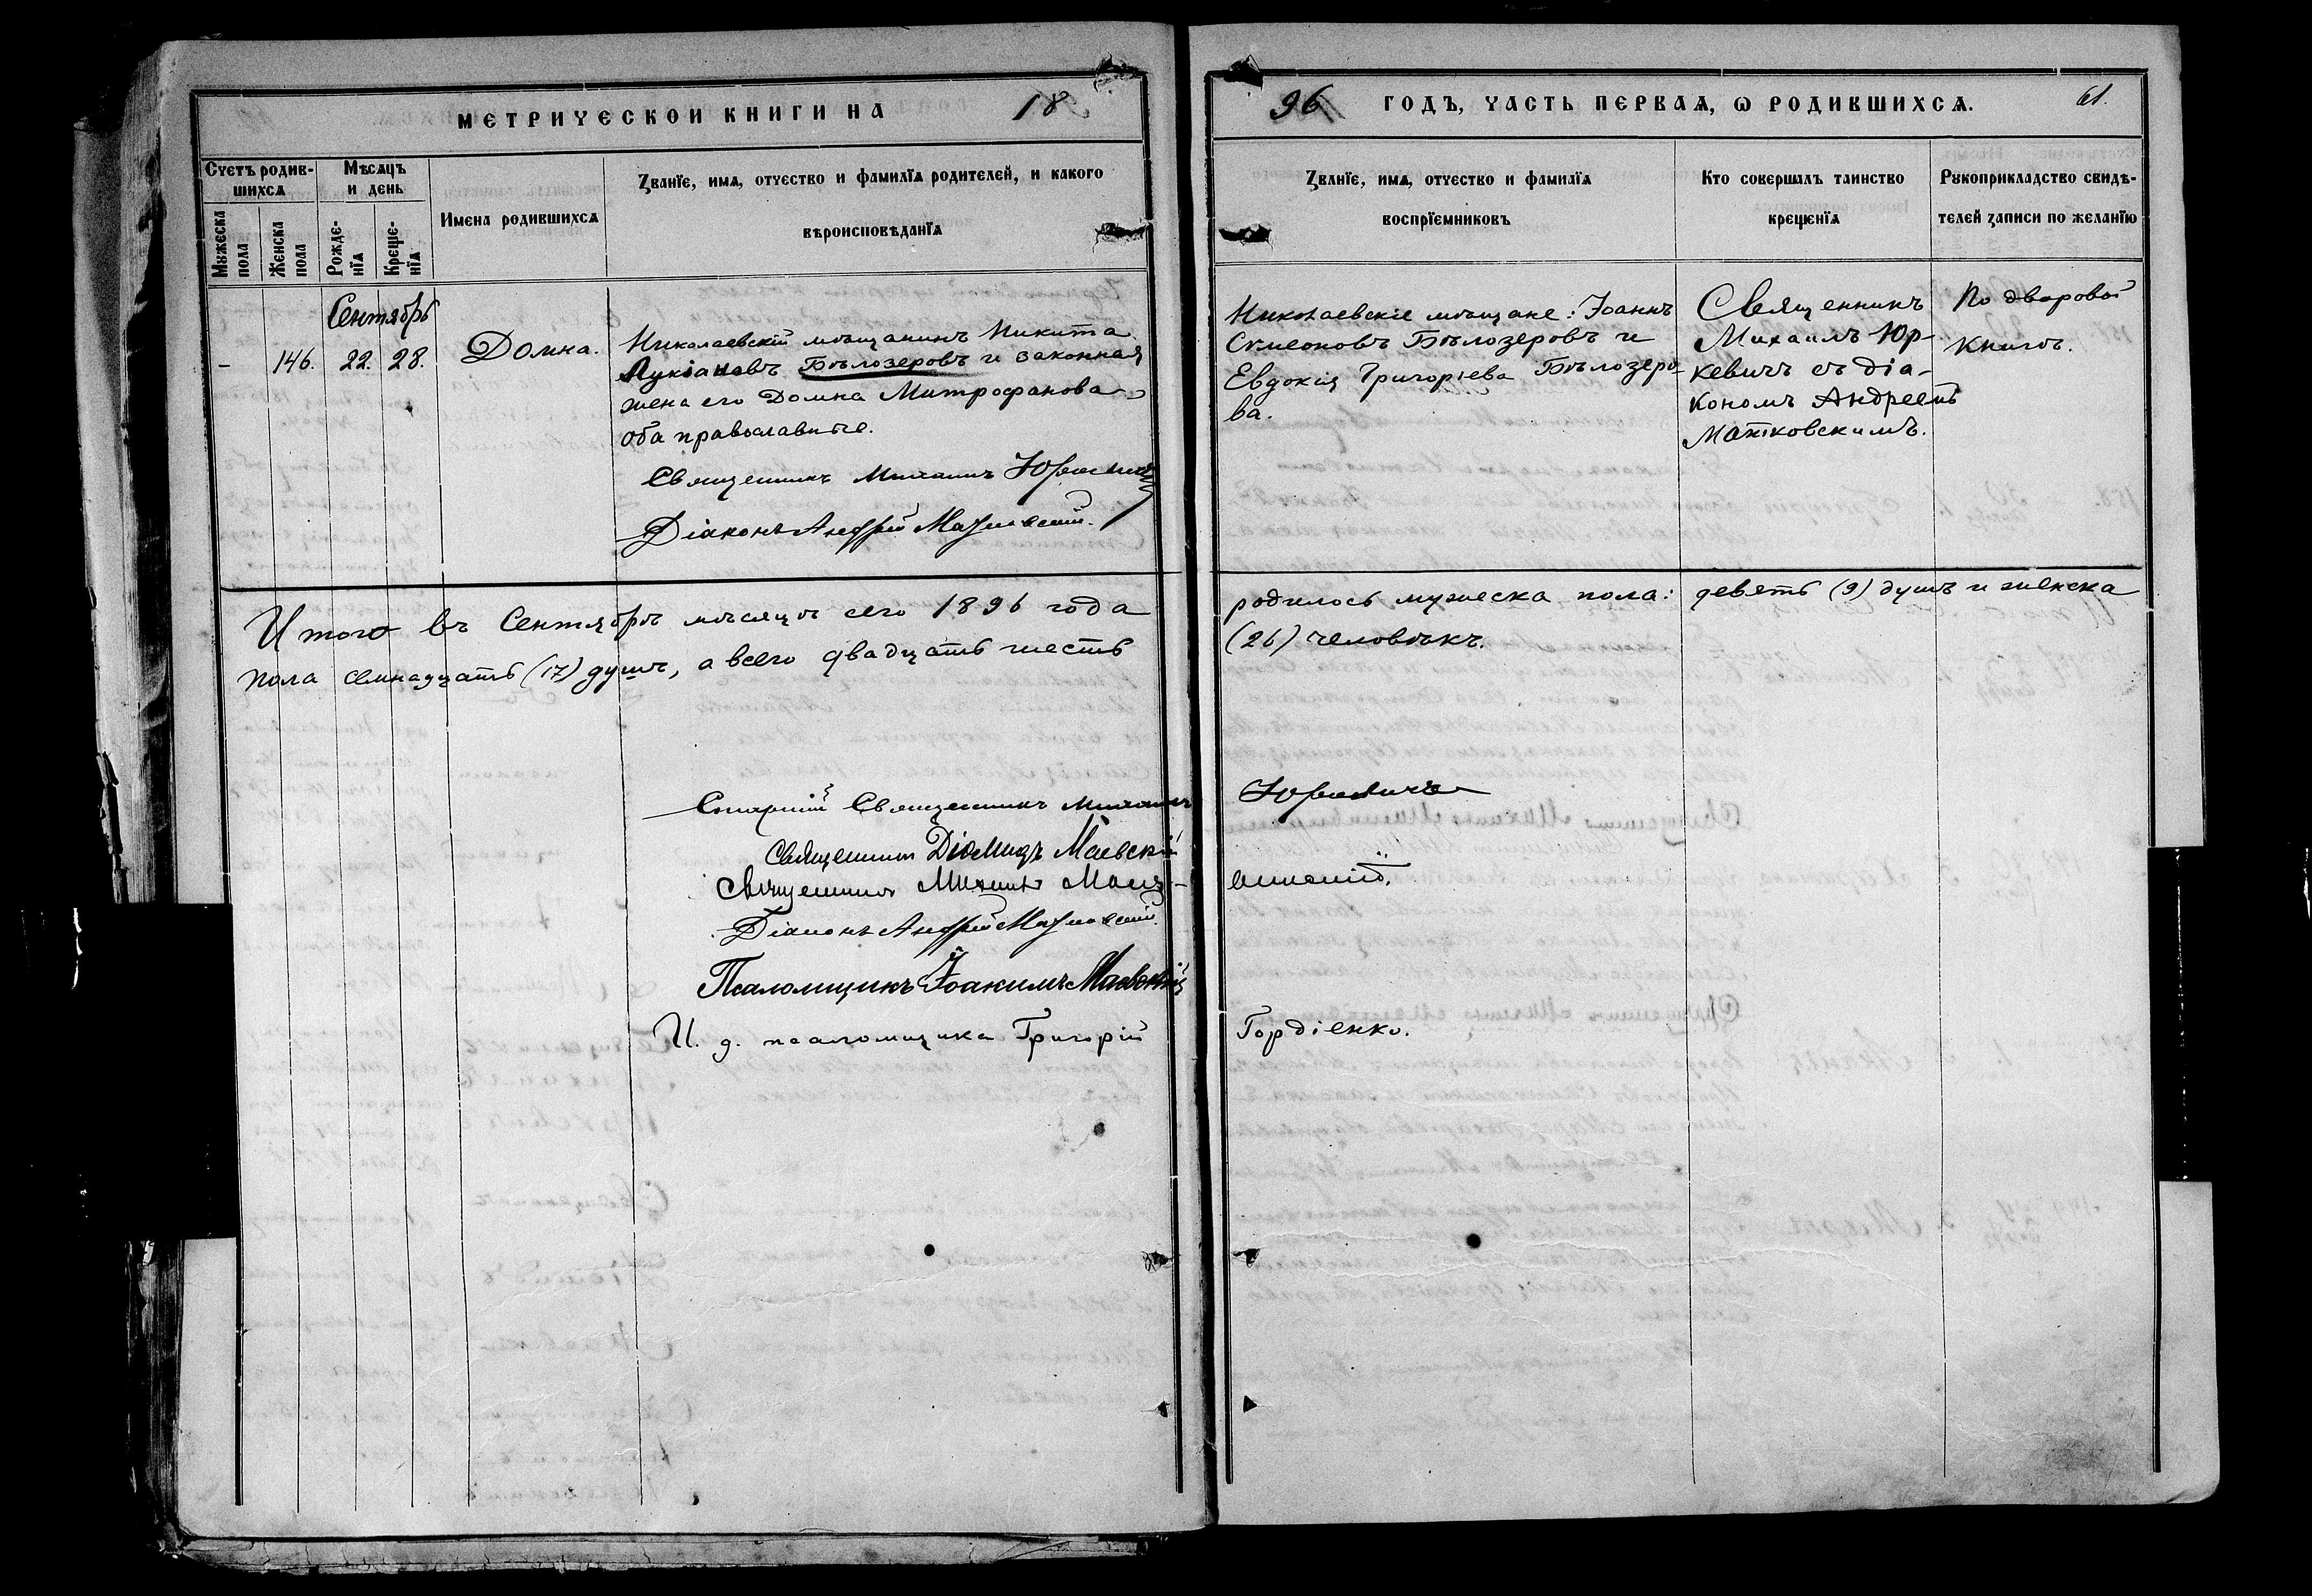 МЕТРИЧЕСКОЙ КНИГИ НА 18
96 ГОДЪ, ЧАСТЬ ПЕРВАЯ, Ѡ РОДИВШИХСЯ. 61.
Счетъ родив-
шихся
Мужеска
пола
Женска
пола
Мѣсяцъ
и день
Рожде-
нїя
Креще-
нїя
Имена родившихся
Званїе, имя, отчество и фамилїя родителей, и какого
вѣроисповѣданїя
Званїе, имя, отчество и фамилїя
воспрїемниковъ
Кто совершалъ таинство
крещенїя
Рукоприкладство свидѣ-
телей записи по желанїю
Сентябрь
– 146. 22. 28.
Домна.
Николаевскій мѣщанинъ Никита
Лукіановъ Бѣлозеровъ и законная
жена его Домна Митрофанова
оба православные.
Священникъ Михаилъ Юркевичъ
Діаконъ Андрей Матковскій.
Николаевскіе мѣщане: Іоаннъ
Симеоновъ Бѣлозеровъ и
Евдокія Григорьева Бѣлозеро-
ва.
Священникъ
Михаилъ Юр-
кевичъ съ діа-
кономъ Андреемъ
Матковскимъ.
По дворовой
книгѣ.
Итого въ Сентябрѣ мѣсяцѣ сего 1896 года родилось мужеска пола: девять (9) душъ и женска
пола семнадцать (17) душъ, а всего двадцать шесть (26) человѣкъ.
Старшій Священникъ Михаилъ Юркевичъ
Священникъ Діомидъ Маевскій
Священникъ Михаилъ
Діаконъ Андрей Матковскій.
Псаломщикъ Іоакимъ Маевскій
И. д. псаломщика Григорій Гордіенко.